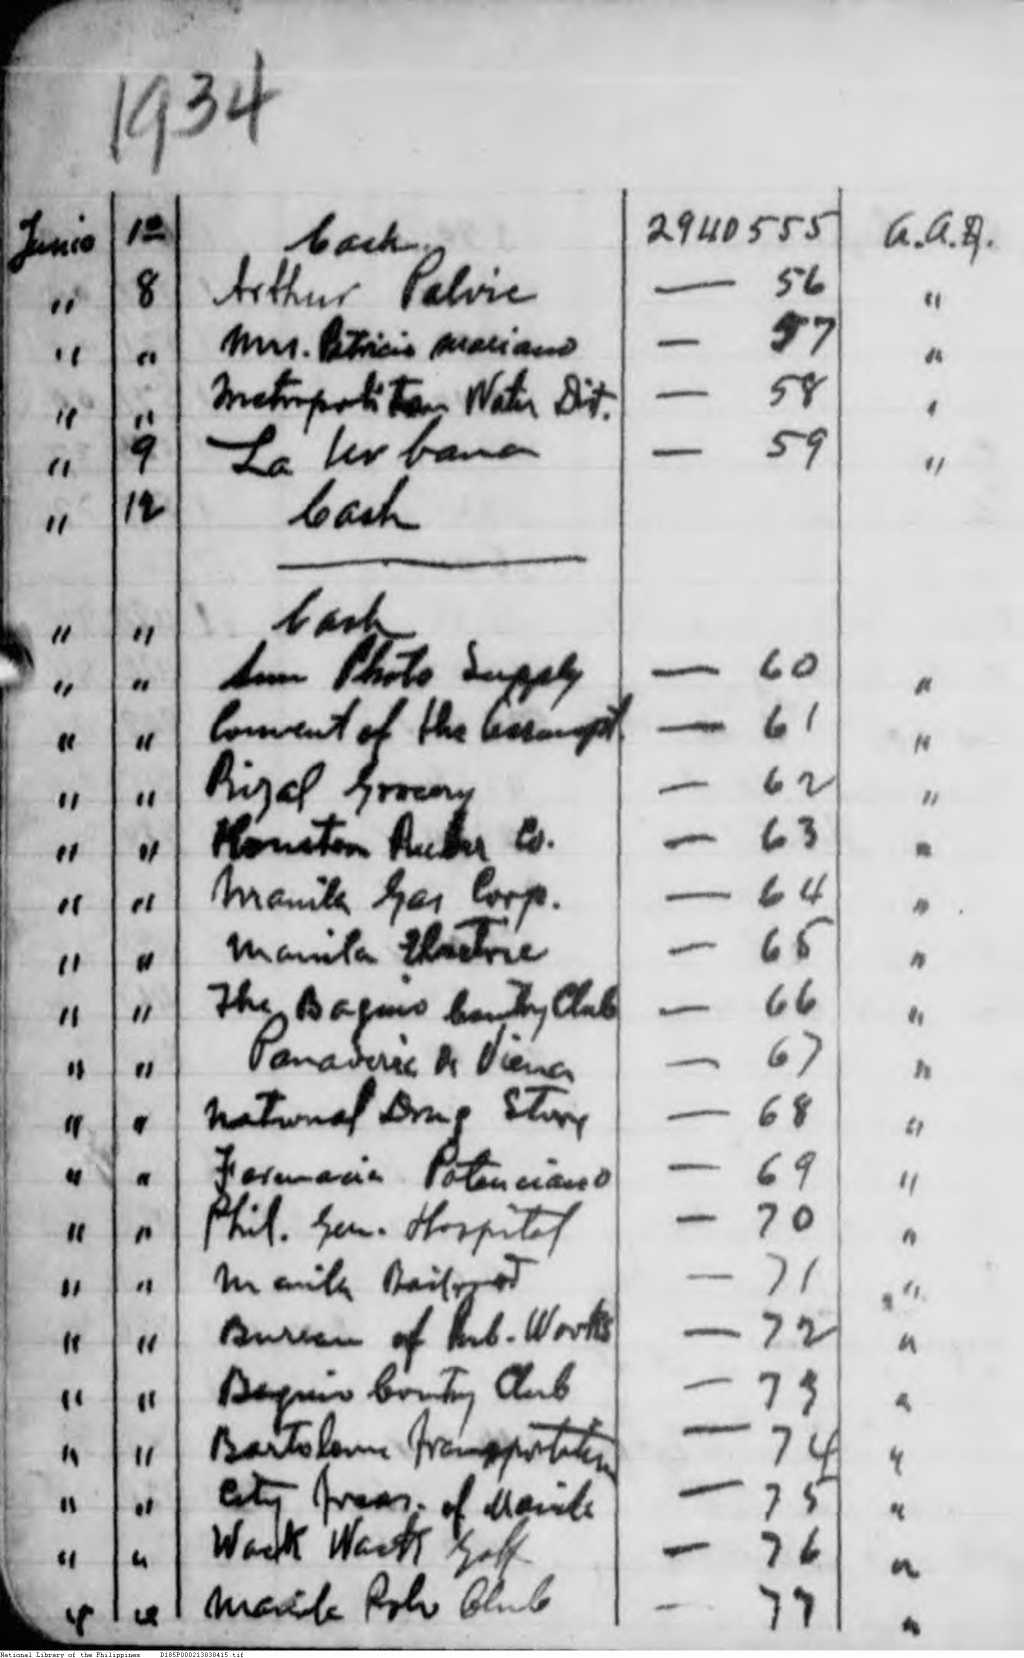 1934
Junio 1º Cash 2940555 A.A.R.
" 8 Arthur Palvie — 56 "
" " Mrs. Patricio Mariano — 57 "
" " Metropolitan Water Dist. — 58 "
" 9 La Urbana — 59 "
" 12 Cash
" " Cash
" " Sun Photo Supply — 60 "
" " Convent of the Assumpt. — 61 "
" " Rizal Grocery — 62 "
" " Houston Rubber Co. — 63 "
" " Manila Gas Corp. — 64 "
" " Manila Electric — 65 "
" " The Baguio Country Club — 66 "
" " Panaderia de Viena — 67 "
" " National Drug Store — 68 "
" " Farmacia Potenciano — 69 "
" " Phil. Gen. Hospital — 70 "
" " Manila Railroad — 71 "
" " Bureau of Pub. Works — 72 "
" " Baguio Country Club — 73 "
" " Bartolome Transportation — 74 "
" " City Treas. of Manila — 75 "
" " Wack Wack Golf — 76 "
" " Manila Polo Club — 77 "
National Library of the Philippines D185P000213838415.tif